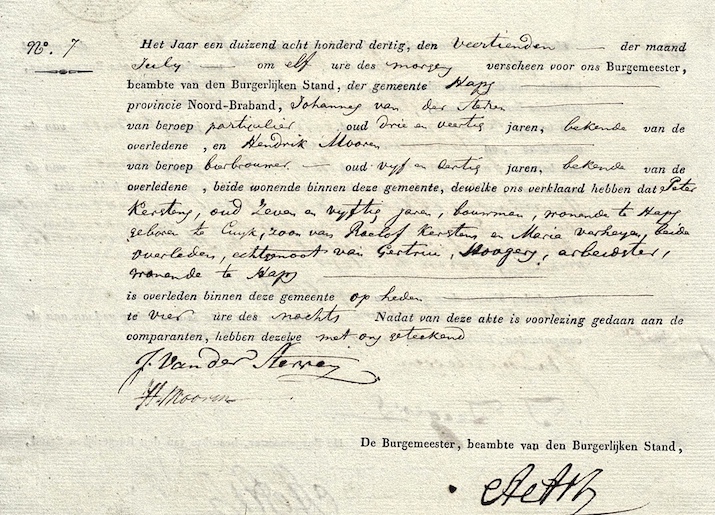 No. 7
Het Jaar een duizend acht honderd dertig, den Veertienden der maand
July om elf ure des morgens verscheen voor ons Burgemeester,
beambte van den Burgerlijken Stand, der gemeente Haps
provincie Noord-Braband, Johannes van der
van beroep particulier oud drie en veertig jaren, bekende van de
overledene , en Hendrik Mooren
van beroep bierbrouwer oud vyf en dertig jaren, bekende van de
overledene , beide wonende binnen deze gemeente, dewelke ons verklaard hebben dat Peter
Kerstens, oud Zeven en vyftig jaren, bouwman, wonende te Haps
geboren te Cuyk, zoon van Roelof Kerstens en Maria verheyen, beide
overleden, echtgenoot van Gertrui, Hoogers, arbeidster,
wonende te Haps
is overleden binnen deze gemeente op heden
te vier ure des nachts Nadat van deze akte is voorlezing gedaan aan de
comparanten, hebben dezelve met ons geteekend
J. Van der
H. Mooren
De Burgemeester, beambte van den Burgerlijken Stand,